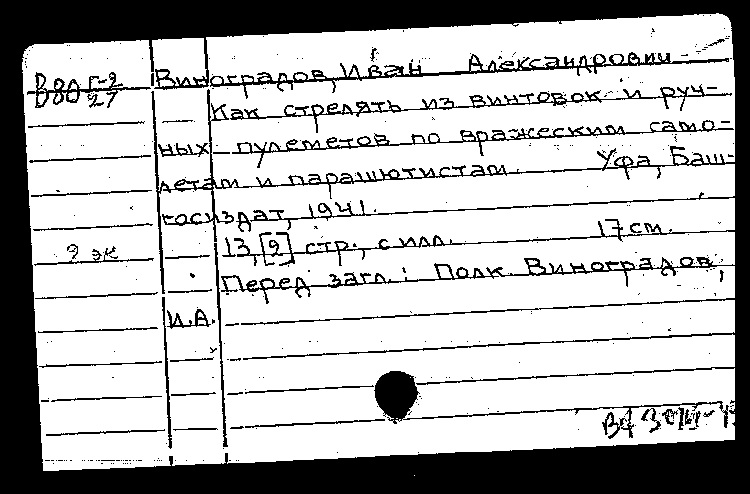 В80 Г-2/27 Виноградов, Иван Александрович
Как стрелять из винтовок и руч-
ных пулеметов по вражеским само-
летам и парашютистам. Уфа, Баш-
госиздат, 1941.
2 эк 13, [2] стр., с илл. 17 см.
Перед загл.: Полк. Виноградов,
И.А.